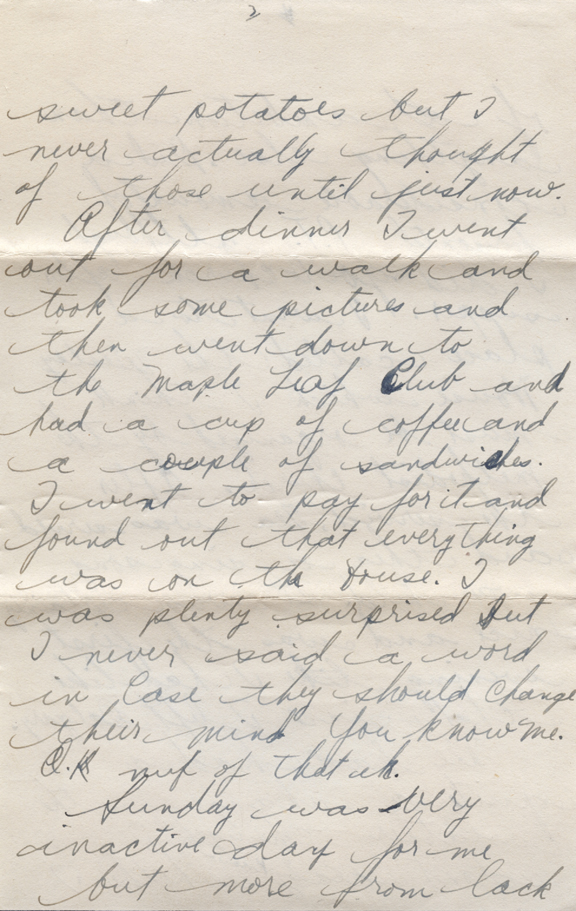 2
sweet potatoes but I
never actually thought
of those until just now.
After dinner I went
out for a walk and
took some pictures and
then went down to
the Maple Leaf Club and
had a cup of coffee and
a couple of sandwiches.
I went to pay for it and
found out that everything
was on the House. I
was plenty surprised but
I never said a word
in Case they should Change
their mind You know me.
O.K nuf of that eh.
Sunday was Very
inactive day for me
but more from lack